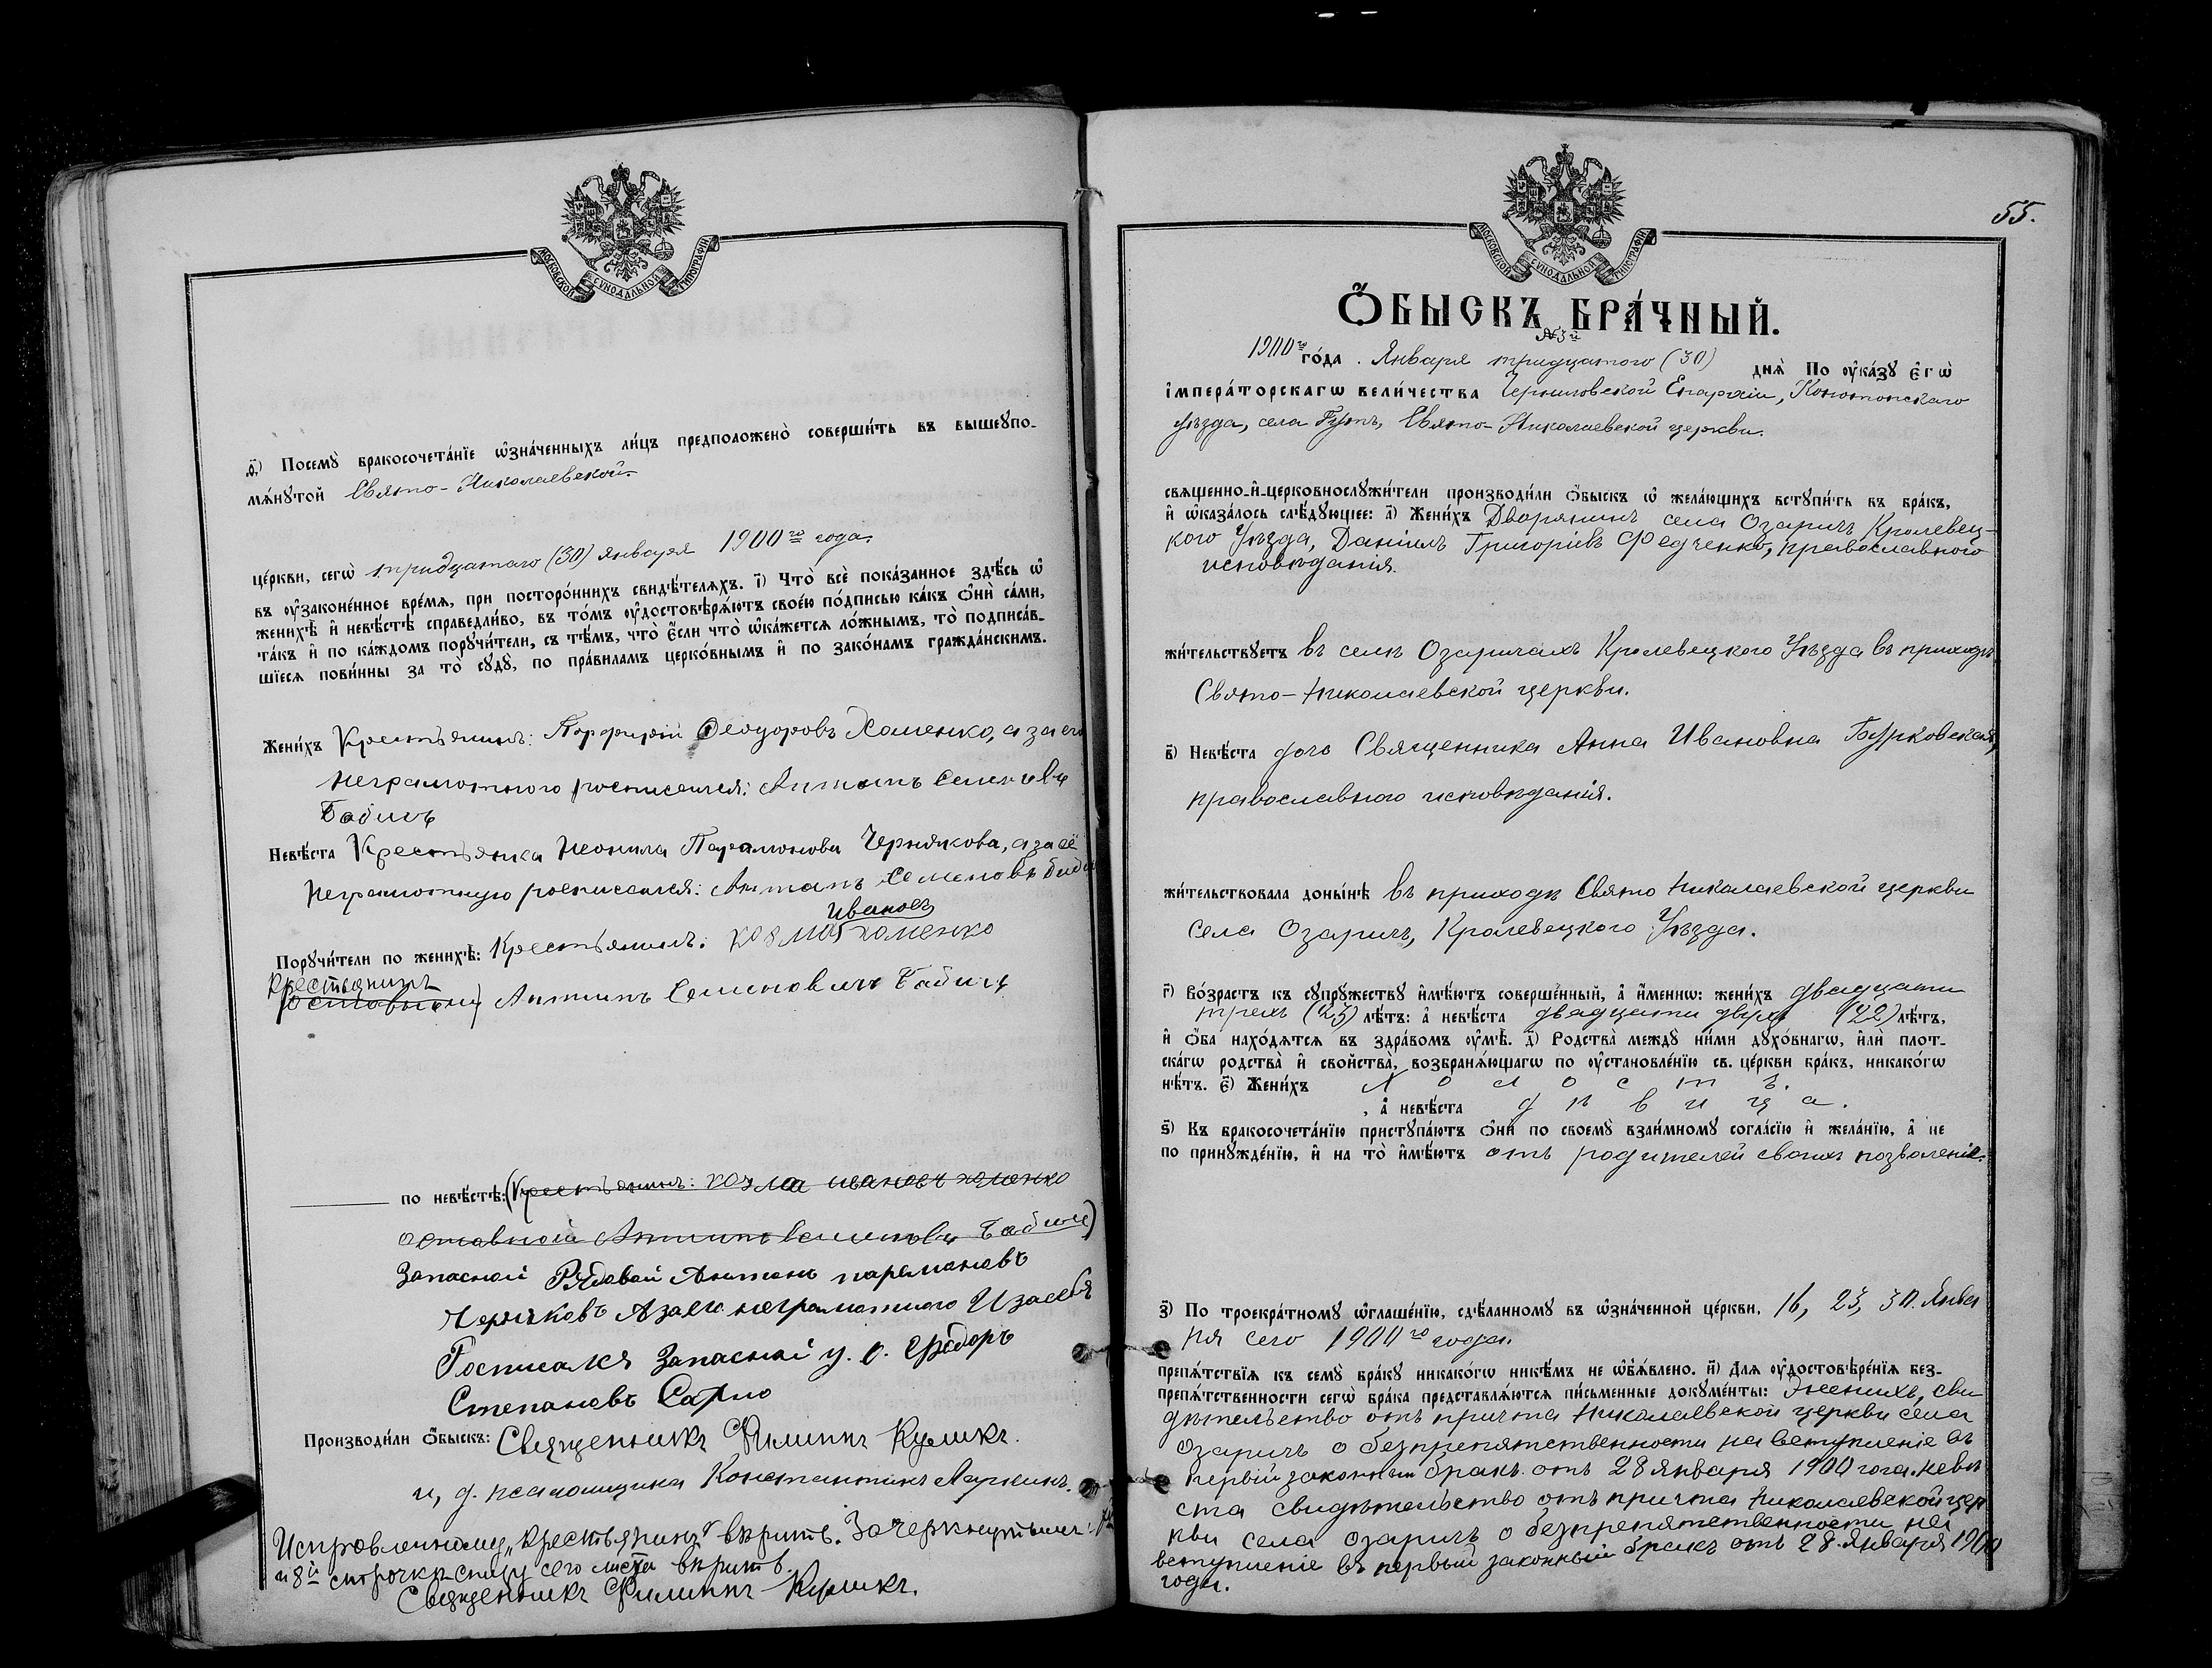 МОСКОВСКОЙ СѴНОДАЛЬНОЙ ТИПОГРАФІИ
ѳ҃) Посемꙋ̀ бракосочета́нїе ѡ҆зна́ченныхъ ли́цъ предположено̀ соверши́ть въ вышеꙋпо-
мѧ́нꙋтой Свято-Николаевской
це́ркви, сегѡ̀ тридцатаго (30) января 1900го года
въ ᲂу҆законе́нное вре́мѧ, при посторо́ннихъ свидѣ́телѧхъ. і҃) Что̀ всѐ пока́занное здѣ́сь ѡ҆
женихѣ̀ и҆ невѣ́стѣ справедли́во, въ то́мъ ᲂу҆достовѣрѧ́ютъ свое́ю по́дписью ка́къ ѻ҆нѝ са́ми,
та́къ и҆ по ка́ждомъ порꙋчи́тели, съ тѣ́мъ, что̀ є҆́сли что̀ ѡ҆ка́жетсѧ ло́жнымъ, то̀ подписа́в-
шїесѧ пови́нны за то̀ сꙋдꙋ̀, по пра́виламъ церко́внымъ и҆ по зако́намъ гражда́нскимъ.
Жени́хъ Крестьянинъ: Порфирій Феодоровъ Хоменко, а за его
неграмотного росписался: Антипъ Семеновъ
Бабичъ
Невѣ́ста Крестьянка Неонила Парамонова Чернякова, а за её
неграмотную росписался: Антипъ Семеновъ Бабич
Ивановъ
Порꙋчи́тели по женихѣ̀: Крестьянинъ: Козма Хоменко
Крестьянинъ
Антипъ Семеновичъ Бабичъ
по невѣ́стѣ: (Крестьянинъ: Козма Ивановъ Хоменко
отставной Антипъ Семеновъ Бабичъ)
Запасной Рядовой Антонъ Парамоновъ
Черняковъ А за его неграмотного И за себя
Росписался Запасной у. о. Фёдоръ
Степановъ
Производи́ли ѻ҆́быскъ: Священникъ Филиппъ Куликъ.
и, д. псаломщика Константинъ
Исправленному „Крестьянинъ" вѣрить. Зачеркнутымъ
и 8й строчки снизу сего листа вѣрить
Священникъ Филиппъ Куликъ.
55.
МОСКОВСКОЙ СѴНОДАЛЬНОЙ ТИПОГРАФІИ
Ѻ҆́БЫСКЪ БРА́ЧНЫЙ.
№ 3й
1900го го́да. Января тридцатого (30) днѧ̀ По ᲂу҆ка́зꙋ є҆гѡ̀
і҆мпера́торскагѡ вели́чества Черниговской Епархіи, Конотопскаго
уѣзда, села Гутъ, Свято-Николаевской церкви.
свѧщенно-и҆-церковнослꙋжи́тели производи́ли ѻ҆́быскъ ѡ҆ жела́ющихъ встꙋпи́ть въ бра́къ,
и҆ ѡ҆каза́лось слѣ́дꙋющее: а҃) Жени́хъ Дворянинъ села Озаричъ Кролевец-
кого Уѣзда, Даніилъ Григоріевъ Федченко, православного
исповѣданія.
жи́тельствꙋетъ въ селѣ Озаричахъ Кролевецкого Уѣзда въ приходѣ
Свято-Николаевской церкви.
в҃) Невѣ́ста дочь Священника Анна Ивановна Бурковская,
православного исповѣданія.
жи́тельствовала доны́нѣ въ приходѣ Свято Николаевской церкви
села Озаричъ, Кролевецкого Уѣзда.
г҃) Во́зрастъ къ сꙋпрꙋ́жествꙋ и҆мѣ́ютъ соверше́нный, а҆ и҆́меннѡ: жени́хъ двадцати
трехъ (23) лѣ́тъ: а҆ невѣ́ста двадцати двухъ (22) лѣ́тъ,
и҆ ѻ҆́ба нахо́дѧтсѧ въ здра́вомъ ᲂу҆мѣ̀. д҃) Родства̀ междꙋ̀ ни́ми дꙋхо́внагѡ, и҆лѝ плот-
ска́гѡ родства̀ и҆ свойства̀, возбранѧ́ющагѡ по ᲂу҆становле́нїю св. це́ркви бра́къ, никако́гѡ
нѣ́тъ. є҃) Жени́хъ Холостъ.
, а҆ невѣ́ста дѣвица.
ѕ҃) Къ бракосочета́нїю пристꙋпа́ютъ ѻ҆нѝ по своемꙋ̀ взаи́мномꙋ согла́сїю и҆ жела́нїю, а҆ не
по принꙋжде́нїю, и҆ на то̀ и҆мѣ́ютъ отъ родителей своихъ позволеніе.
з҃) По троекра́тномꙋ ѡ҆глаше́нїю, сдѣ́ланномꙋ въ ѡ҆зна́ченной це́ркви, 16, 23, 30. Янва
ря сего 1900го года.
препѧ́тствїѧ къ семꙋ̀ бра́кꙋ никако́гѡ никѣ́мъ не ѡ҆б̾ѧ́влено. и҃) Для ᲂу҆достовѣре́нїѧ без-
препѧ́тственности сегѡ̀ бра́ка представлѧ́ютсѧ пи́сьменные докꙋме́нты: Женихъ, сви
дѣтельство отъ причта Николаевской церкви села
Озаричъ о безпрепятственности на вступленіе въ
первый законный бракъ отъ 28 января 1900 года. невѣ
ста свидѣтельство отъ причта Николаевской цер
кви села Озаричъ о безпрепятственности на
вступленіе въ первый законный бракъ отъ 28. Января 1900
года.